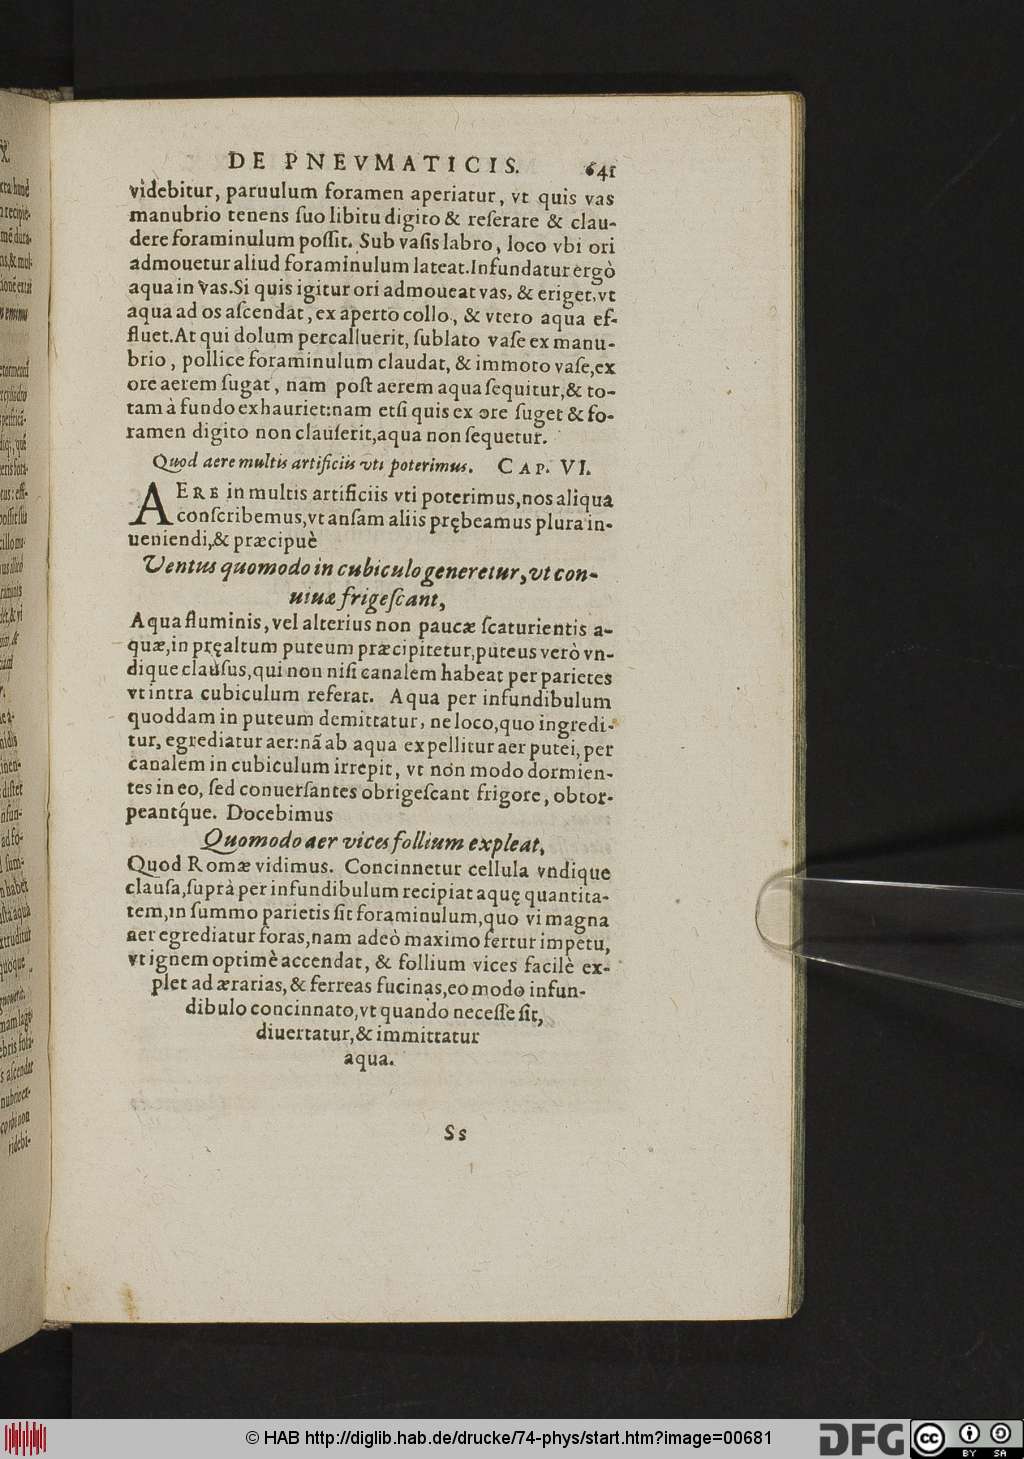 DE PNEVMATICIS. 641
videbitur, paruulum foramen aperiatur, vt quis vas
manubrio tenens ſuo libitu digito & reſerare & clau-
dere foraminulum poſſit. Sub vaſis labro, loco vbi ori
admouetur aliud foraminulum lateat. Infundatur ergò
aqua in vas. Si quis igitur ori admoueat vas, & eriget, vt
aqua ad os aſcendat, ex aperto collo, & vtero aqua ef-
fluet. At qui dolum percalluerit, ſublato vaſe ex manu-
brio, pollice foraminulum claudat, & immoto vaſe, ex
ore aerem ſugat, nam poſt aerem aqua ſequitur, & to-
tam à fundo exhauriet: nam etſi quis ex ore ſuget & fo-
ramen digito non clauſerit, aqua non ſequetur.
Quod aere multis artificiis vti poterimus. CAP. VI.
AERE in multis artificiis vti poterimus, nos aliqua
conſcribemus, vt anſam aliis prębeamus plura in-
ueniendi, & præcipuè
Ventus quomodo in cubiculo generetur, vt con-
uiuæ frigeſcant,
Aqua fluminis, vel alterius non paucæ ſcaturientis a-
quæ, in pręaltum puteum præcipitetur, puteus verò vn-
dique clauſus, qui non niſi canalem habeat per parietes
vt intra cubiculum referat. Aqua per infundibulum
quoddam in puteum demittatur, ne loco, quo ingredi-
tur, egrediatur aer: nã ab aqua expellitur aer putei, per
canalem in cubiculum irrepit, vt non modo dormien-
tes in eo, ſed conuerſantes obrigeſcant frigore, obtor-
peantq́ue. Docebimus
Quomodo aer vices follium expleat,
Quod Romæ vidimus. Concinnetur cellula vndique
clauſa, ſuprà per infundibulum recipiat aquę quantita-
tem, in ſummo parietis ſit foraminulum, quo vi magna
aer egrediatur foras, nam adeò maximo fertur impetu,
vt ignem optimè accendat, & follium vices facilè ex-
plet ad ærarias, & ferreas fucinas, eo modo infun-
dibulo concinnato, vt quando neceſſe ſit,
diuertatur, & immittatur
aqua.
Ss
© HAB http://diglib.hab.de/drucke/74-phys/start.htm?image=00681
DFG
cc BY SA